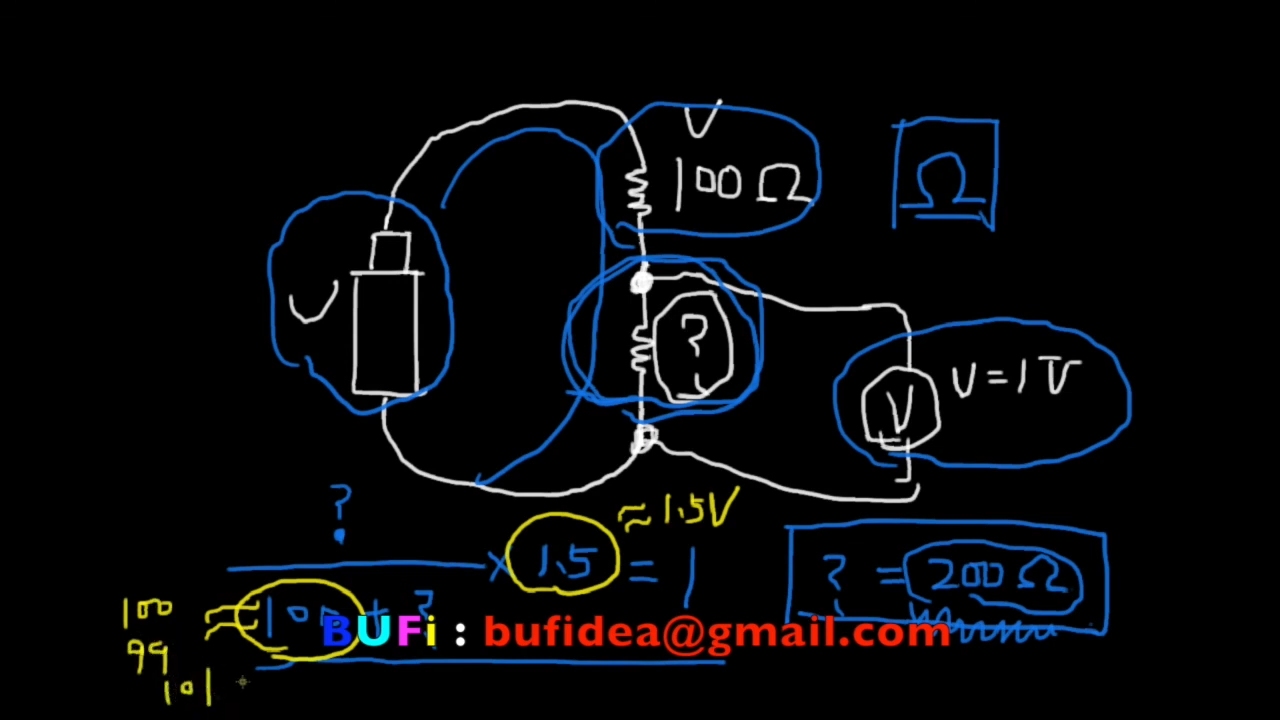 100 Ω
Ω
?
V = 1 V
V
?
≈ 1.5V
× 1.5 = 1
? = 200 Ω
100 + ?
100
99
101
BUFi : bufidea@gmail.com